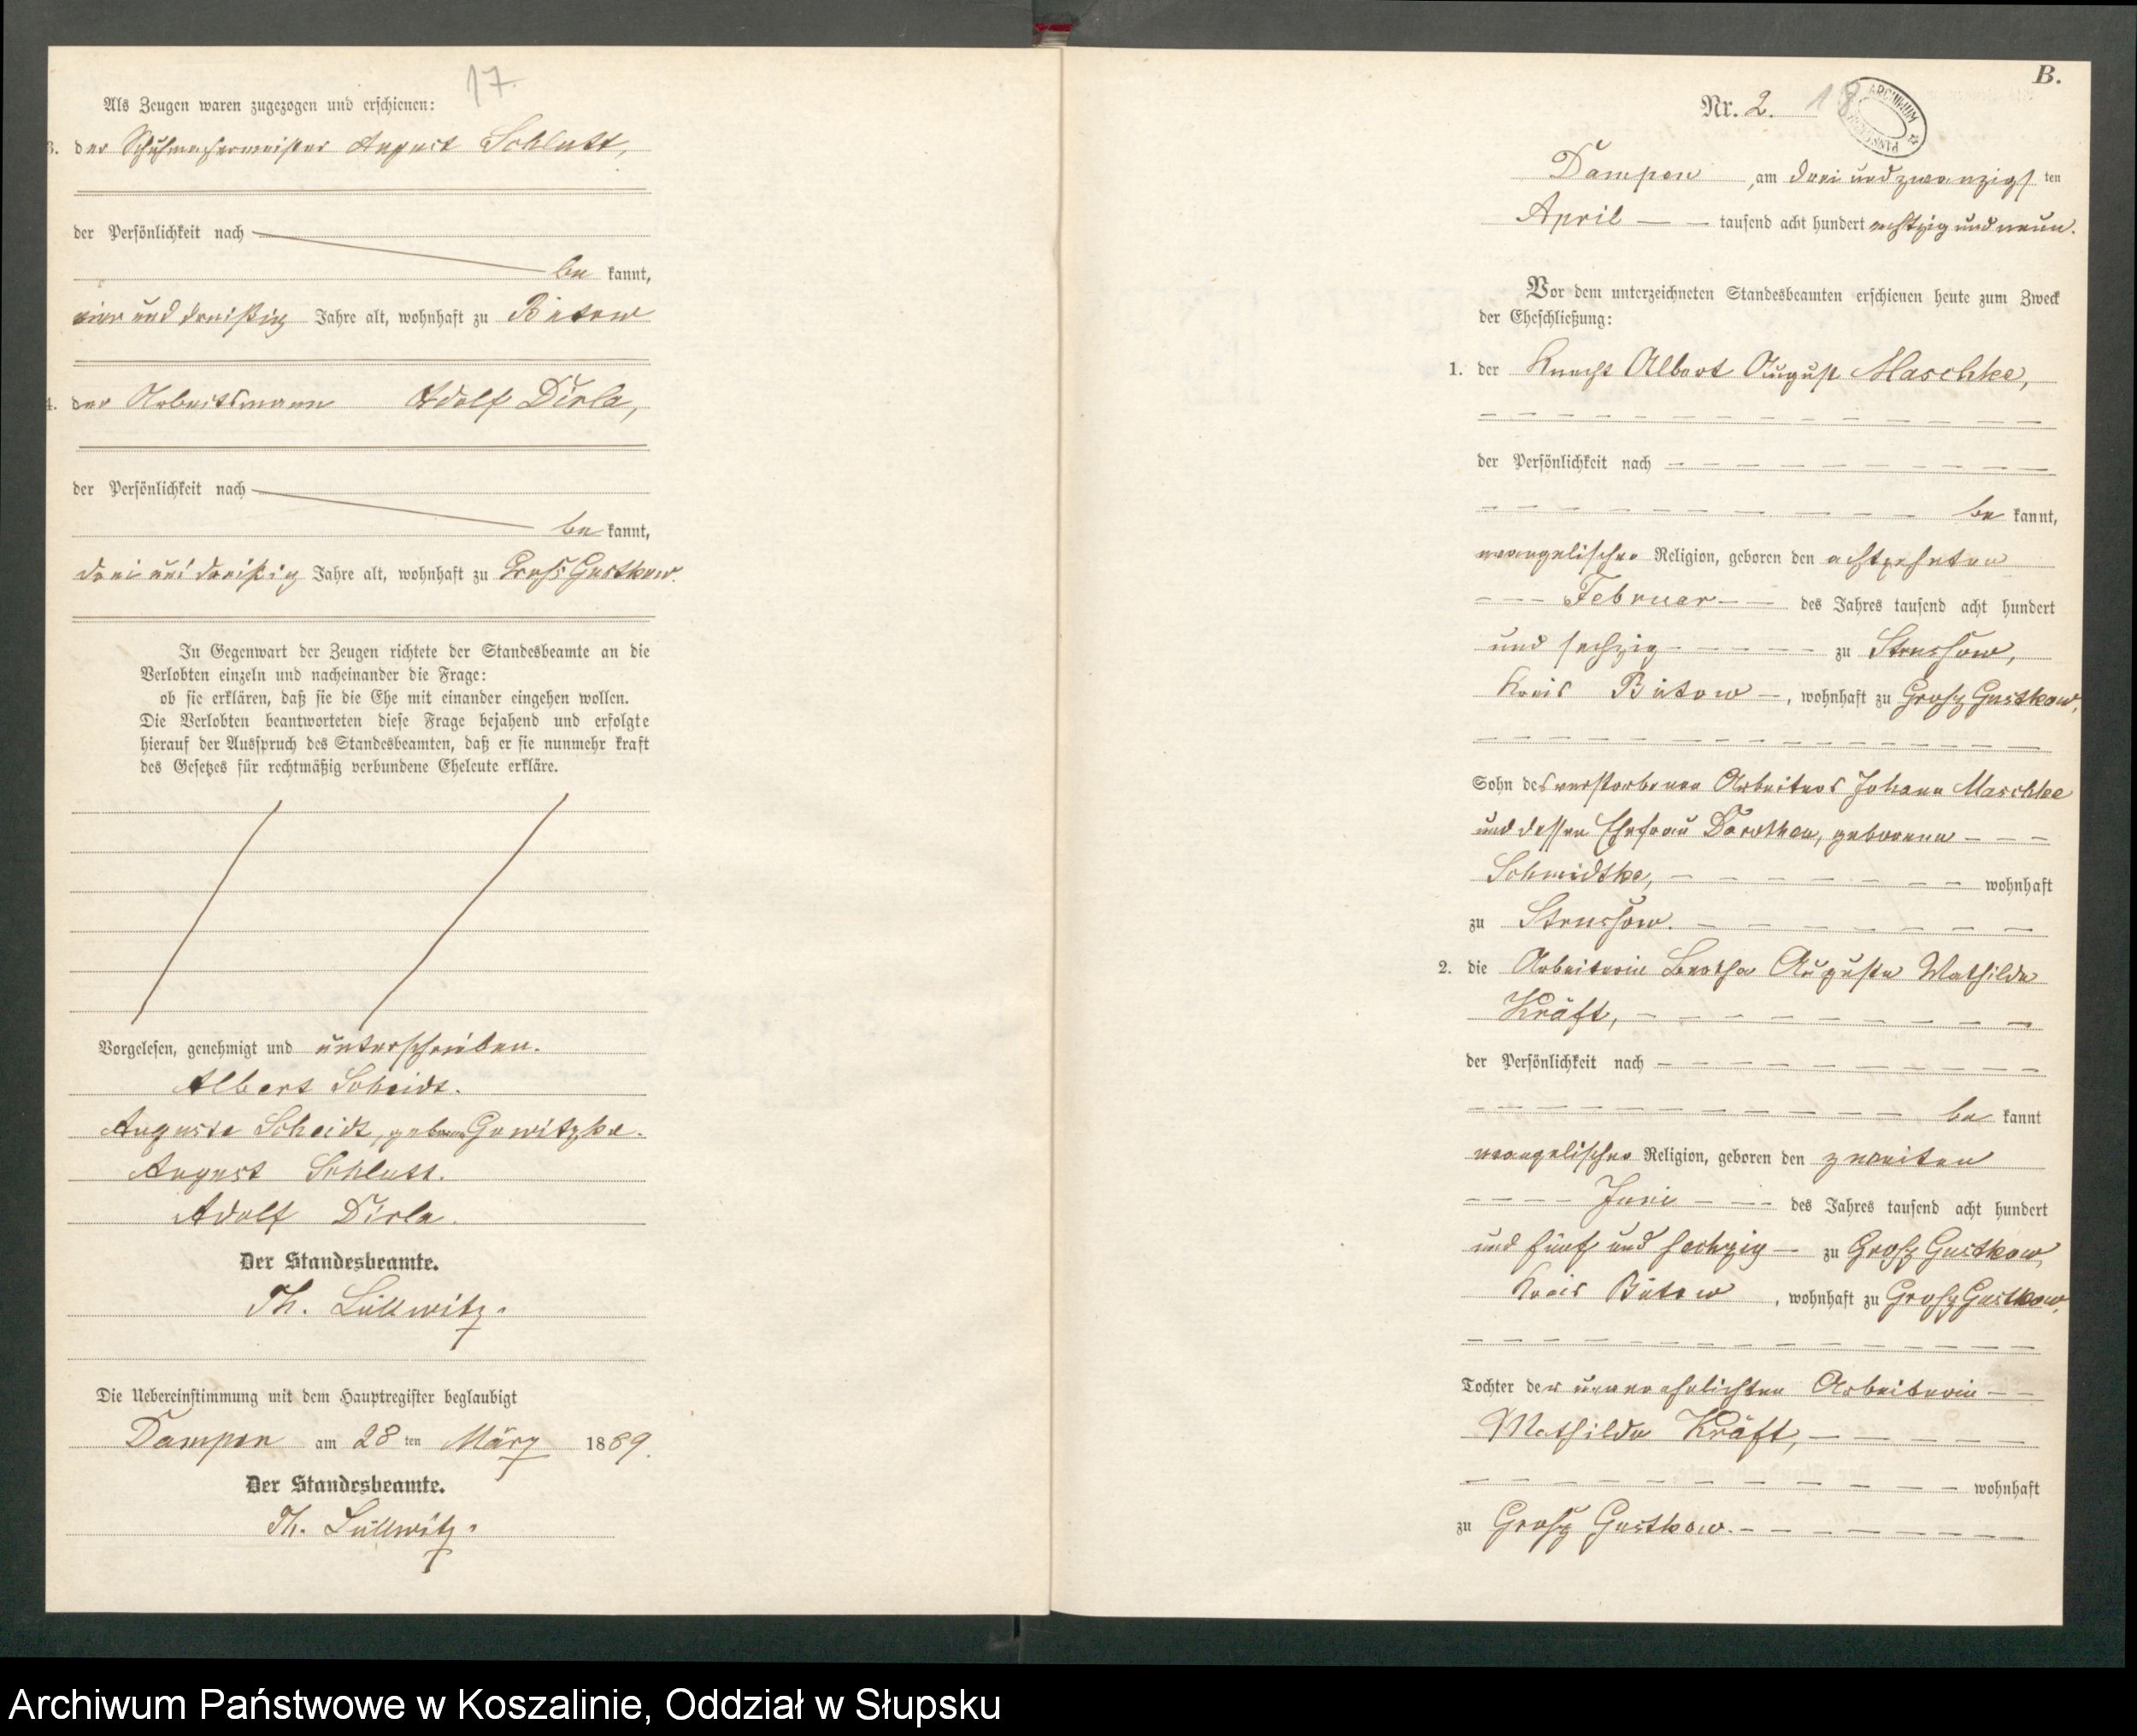 17.
Als Zeugen waren zugezogen und erschienen:
3. der Schuhmachermeister August Schlutt,
der Persönlichkeit nach
be kannt,
vier und dreißig Jahre alt, wohnhaft zu Bütow
4. der Arbeitsmann Adolf Dirla,
der Persönlichkeit nach
be kannt,
drei und dreißig Jahre alt, wohnhaft zu Gross Gustkow.
In Gegenwart der Zeugen richtete der Standesbeamte an die
Verlobten einzeln und nacheinander die Frage:
ob sie erklären, daß sie die Ehe mit einander eingehen wollen.
Die Verlobten beantworteten diese Frage bejahend und erfolgte
hierauf der Ausspruch des Standesbeamten, daß er sie nunmehr kraft
des Gesetzes für rechtmäßig verbundene Eheleute erkläre.
Vorgelesen, genehmigt und unterschrieben.
Albert Scheidt.
Auguste Scheidt, geborene Gowitzke.
August Schlutt.
Adolf Dirla.
Der Standesbeamte.
Th. Lüllwitz.
Die Uebereinstimmung mit dem Hauptregister beglaubigt
Dampen am 28 ten März 1889.
Der Standesbeamte.
Th. Lüllwitz.
B.
Nr. 2. 18
ARCHIWUM
Dampen, am drei und zwanzigs ten
April — — tausend acht hundert achtzig und neun.
Vor dem unterzeichneten Standesbeamten erschienen heute zum Zweck
der Eheschließung:
1. der Knecht Albert August Maschke,
der Persönlichkeit nach
be kannt,
evangelischer Religion, geboren den achtzehnten
Februar des Jahres tausend acht hundert
und sechzig zu Strussow,
Kreis Bütow, wohnhaft zu Grosz Gustkow,
Sohn des verstorbenen Arbeiters Johann Maschke
und dessen Ehefrau Dorothea, geborene
Schmidtke, wohnhaft
zu Strussow.
2. die Arbeiterin Bertha Auguste Mathilde
Kräft,
der Persönlichkeit nach
be kannt
evangelischer Religion, geboren den zweiten
Juni des Jahres tausend acht hundert
und fünf und sechzig zu Grosz Gustkow,
Kreis Bütow, wohnhaft zu Grosz Gustkow,
Tochter der unverehelichten Arbeiterin
Mathilde Kräft,
wohnhaft
zu Grosz Gustkow.
Archiwum Państwowe w Koszalinie, Oddział w Słupsku